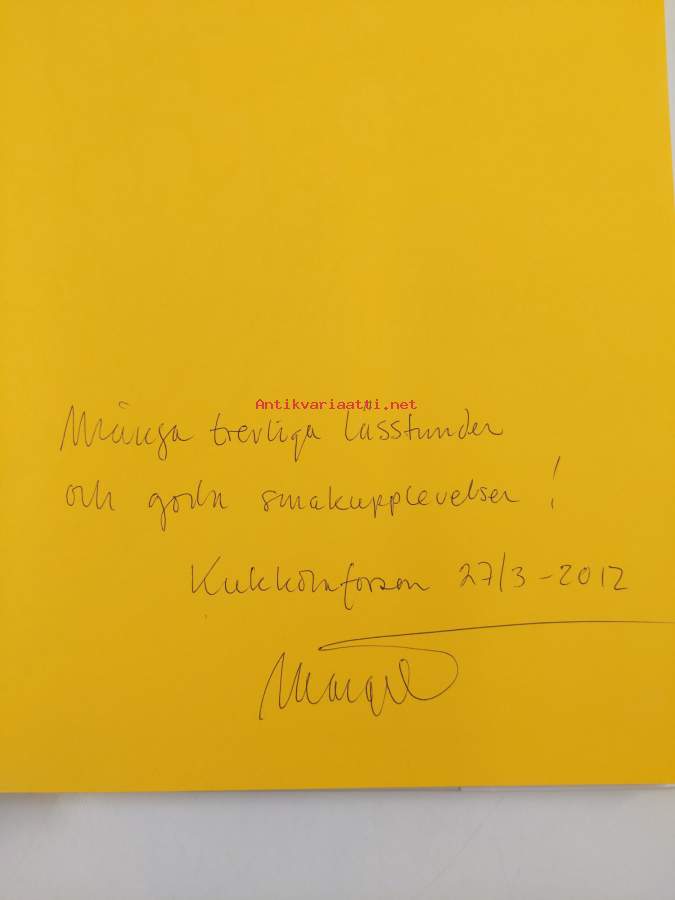 Antikvariaatti.net
Många trevliga lässtunder
och goda smakupplevelser!
Kukkolaforsen 27/3-2012